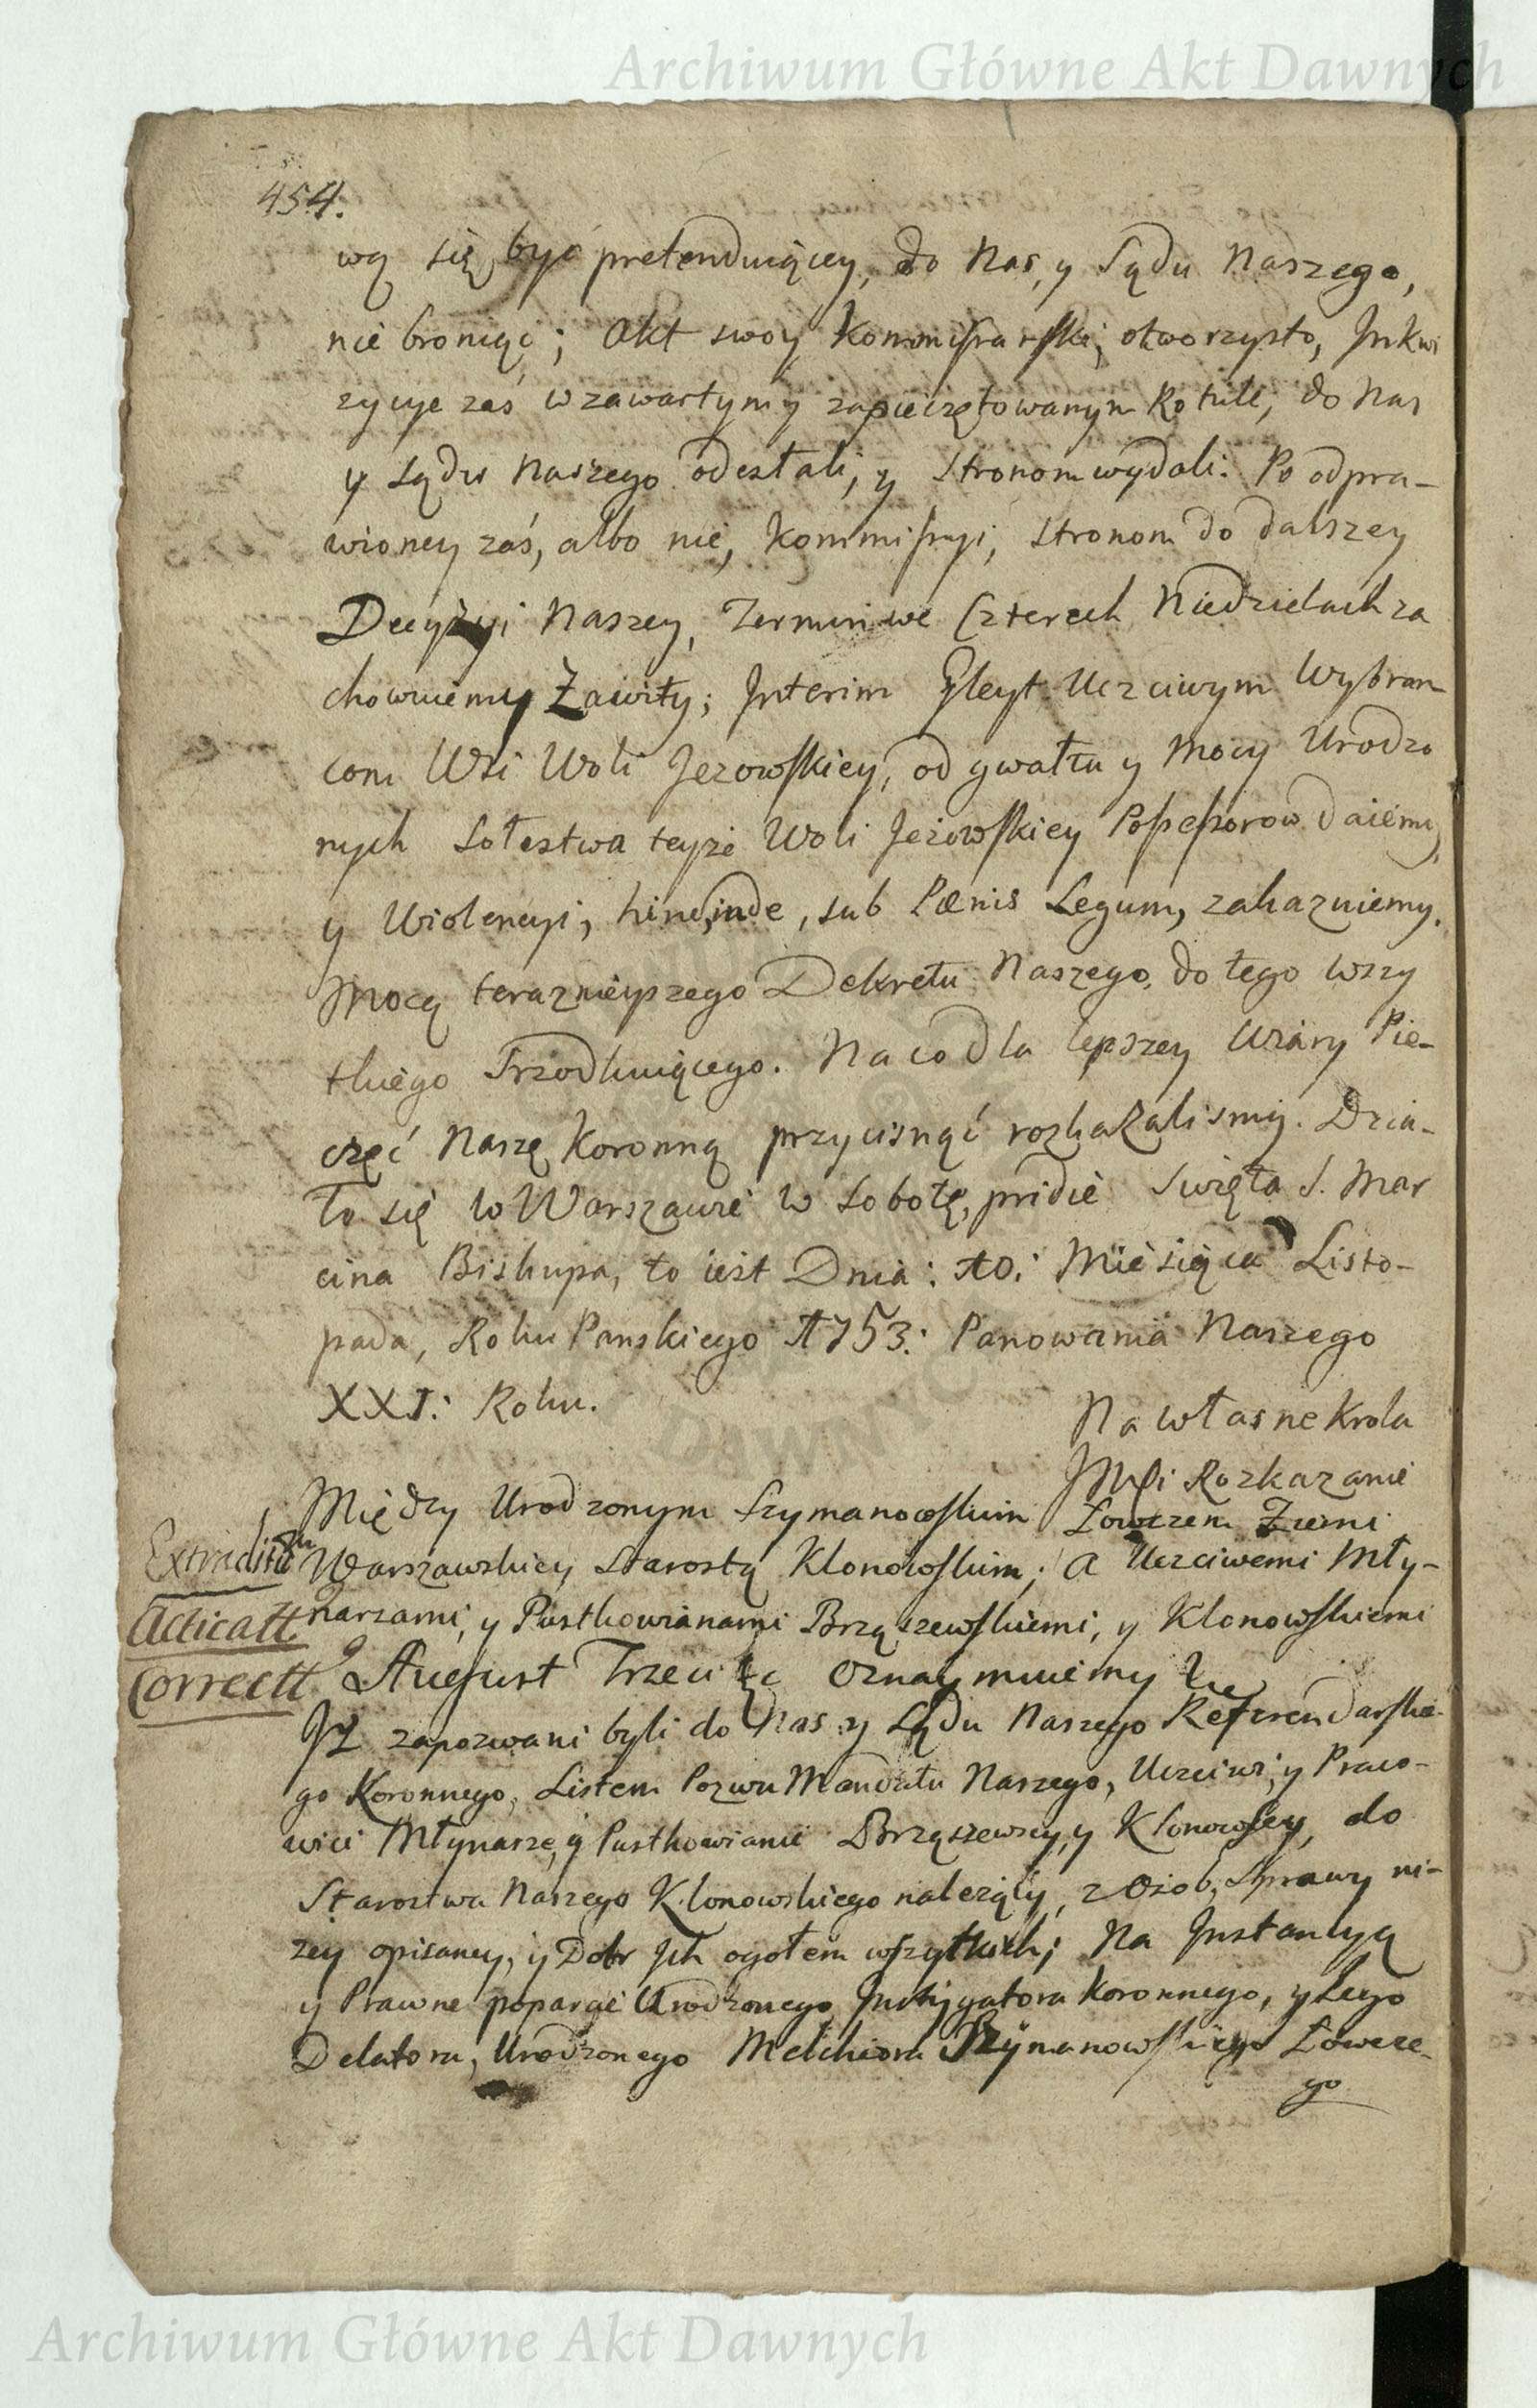 Archiwum Główne Akt Dawnych
454.
wą się być pretenduiącey, do Nas, y Sądu Naszego,
nie broniąc; Akt swoy Kommissarski, otworzysto, Inkwi
zycye zaś w zawartym y zapieczętowanym Rotule, do Nas
y Sądu Naszego odesłali, y Stronom wydali. Po odpra-
wioney zaś, albo nie, Kommissyi, Stronom do dalszey
Decyzyi Naszey, Termin we Czterech Niedzielach za
chowuiemy Zawity; Interim Gleyt Uczciwym Wybran
com Wsi Woli Jezowskiey, od gwałtu y mocy Urodzo
nych Sołestwa teyże Woli Jeżowskiey Possessorow daiemy,
y Wiolencyi, hinc, inde, sub Pœnis Legum, zakazuiemy.
Mocą teraznieyszego Dekretu Naszego, do tego wszy
tkiego Srzodkuiącego. Na co dla lepszey Wiary Pie-
częć Naszę Koronną przycisnąć rozkazalismy. Dzia-
ło się w Warszawie w Sobotę, pridie Swięta S. Mar
cina Biskupa, to iest Dnia: 10: Miesiąca Listo-
pada, Roku Panskiego 1753: Panowania Naszego
XXI: Roku.
Na własne Krola
JMCi Rozkazanie
Między Urodzonym Szymanowskim Łowczem Ziemi
Warszawskiey, Starostą Klonowskim; a Uczciwemi Mły-
narzami, y Pustkowianami Brząszewskiemi, y Klonowskiemi
Extradittm
Acticatt.
Correctt
August Trzeci &c Oznaymuiemy
Iż zapozwani byli do Nas y Sądu Naszego Referendarskie-
go Koronnego, Listem Pozwu Mandatu Naszego, Uczciwi, y Praco-
wici Młynarze, y Pustkowianie Brząszewscy, y Klonowscy, do
Starostwa Naszego Klonowskiego należący, z Osob, Sprawy ni-
zey opisaney, y Dobr Ich ogołem wszytkich; Na Instancyą
y Prawne poparcie Urodzonego Instygatora Koronnego, y Iego
Delatora, Urodzonego Melchiora Szymanowskiego Łowcze-
go
Archiwum Główne Akt Dawnych